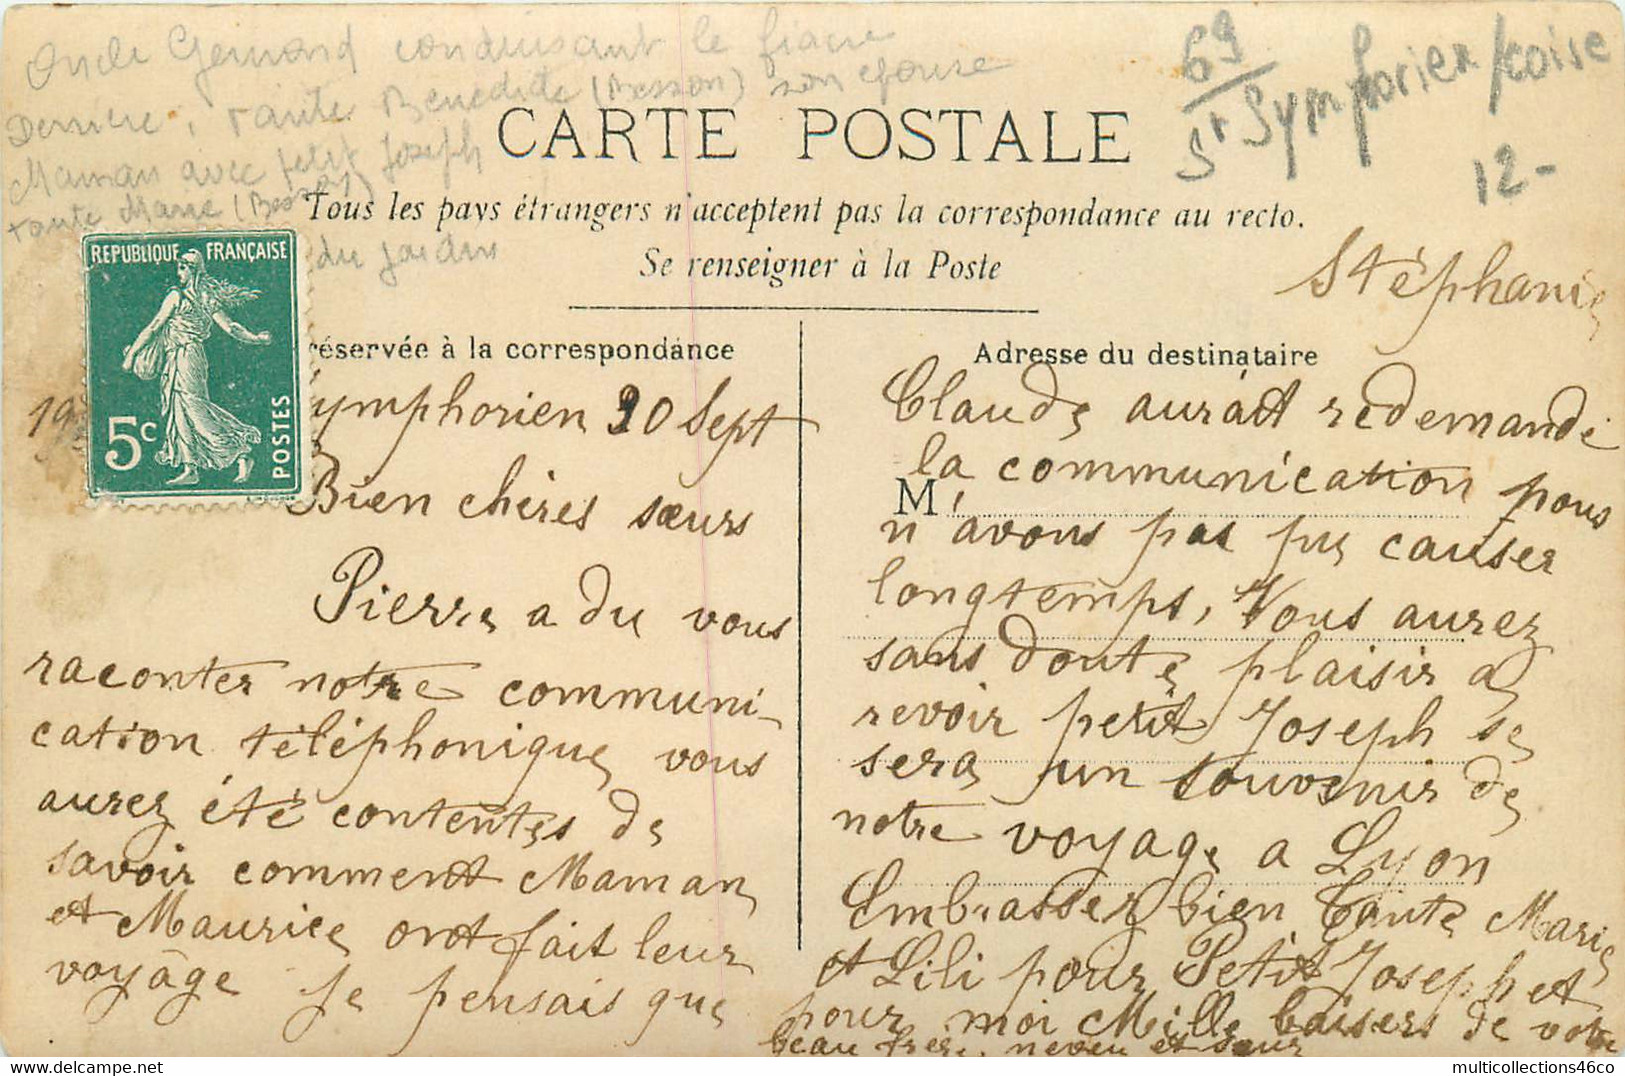 Oncle Gemond conduisant le fiacre
Derriere, tante Benedicte (Besson) son epouse
Maman avec petit Joseph
tante Marie (Besson)
du jardin
69
St Symphorien/coise
12-
CARTE POSTALE
Tous les pays étrangers n'acceptent pas la correspondance au recto.
Se renseigner à la Poste
REPUBLIQUE FRANÇAISE
5c
POSTES
réservée à la correspondance
19
ymphorien 20 Sept
Bien chères sœurs
Pierre a du vous
raconter notre communi-
cation téléphonique vous
aurez été contentes de
savoir comment Maman
et Maurice ont fait leur
voyage je pensais que
Stéphanie
Adresse du destinataire
Claude aurait redemandé
la communication nous
M
n'avons pas pu causer
longtemps, Vous aurez
sans doute plaisir a
revoir petit Joseph se
sera un souvenir de
notre voyage a Lyon
Embrassez bien tante Marie
et Lili pour Petit Joseph et
pour moi Mille baisers de votre
beau frere, neveu et sœur
multicollections46co